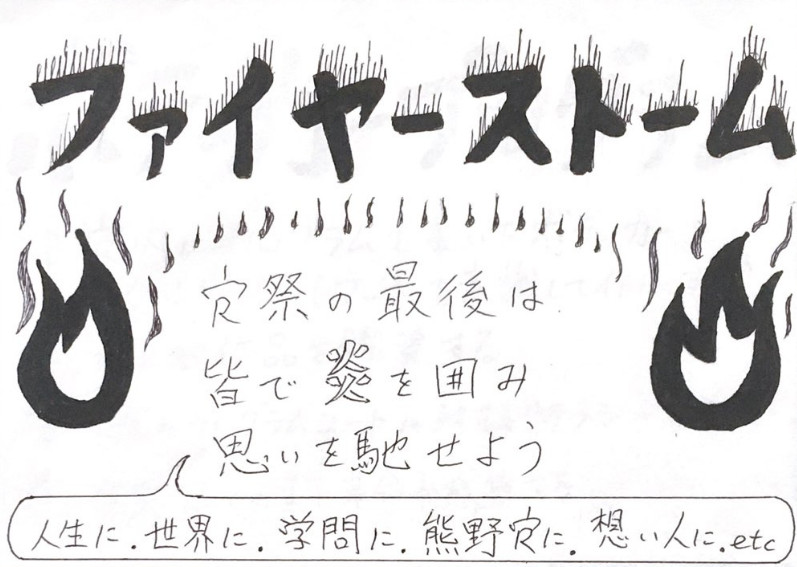 ファイヤーストーム
寮祭の最後は
皆で炎を囲み
思いを馳せよう
人生に.世界に.学問に.熊野寮に.想い人に.etc